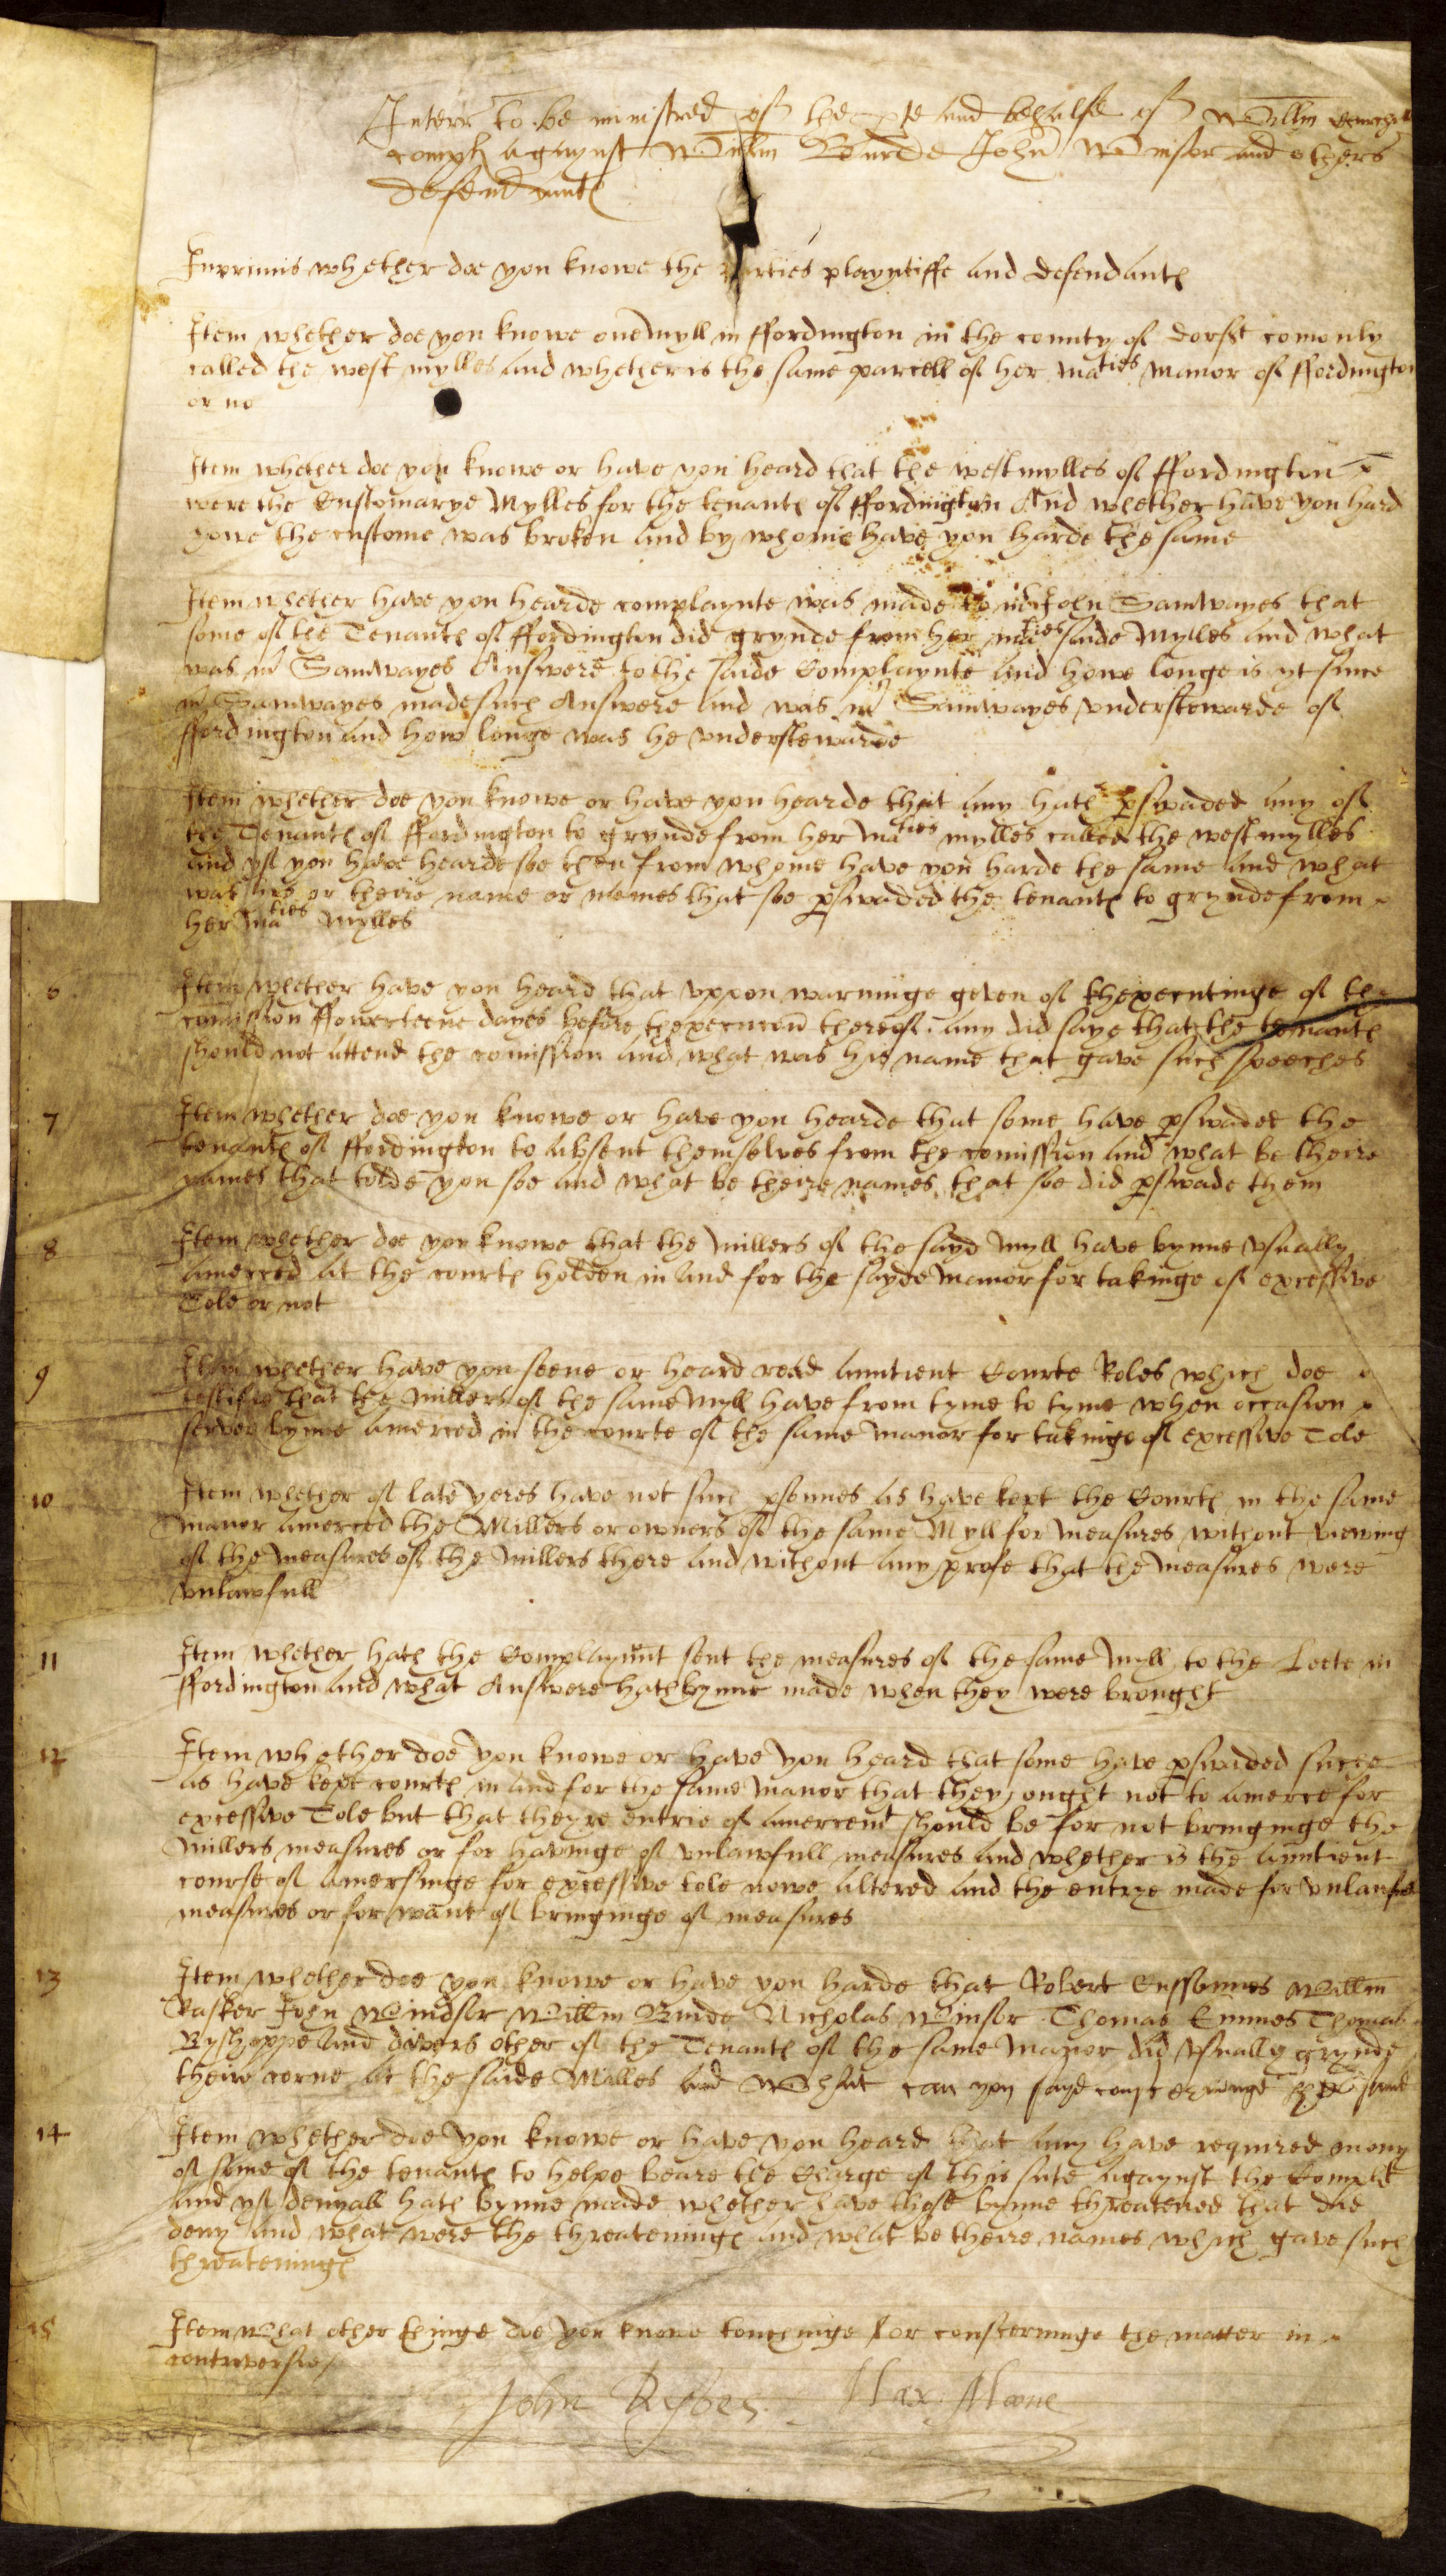 Interr to be ministred of the pte and behalfe of Willm
compl agaynst Willm Burde John Winsor and others
defendantes
Inprimis whether doe you knowe the parties playntiffe and defendantes
Item whether doe you knowe one Myll in ffordington in the county of dorst comonly
called the west mylles and whether is the same parcell of her maties manor of ffordington
or no
Item whether doe you knowe or have you heard that the west mylles of ffordington
were the Customarye Mylles for the tenantes of ffordington And whether have you hard
howe the custome was broken and by whome have you harde the same
Item whether have you hearde complaynte was made to mr John Samwayes that
some of the Tenantes of ffordington did grynde from her maties saide Mylles and what
was mr Samwayes Answere to the saide Complaynte and howe longe is yt since
mr Samwayes made such Answere and was mr Samwayes understewarde of
ffordington and how longe was he understewarde
Item whether doe you knowe or have you hearde that any hath pswaded any of
the Tenantes of ffordington to grynde from her maties mylles called the west mylles
and yf you have hearde soe then from whome have you harde the same and what
was his or theire name or names that soe pswaded the tenantes to grynde from
her maties Mylles
6 Item whether have you heard that uppon warninge geven of thexecutinge of the
comission ffowerteene dayes before thexecucon thereof any did saye that the tenantes
should not attend the comission and what was his name that gave such speeches
7 Item whether doe you knowe or have you hearde that some have pswaded the
tenantes of ffordington to absent themselves from the comission and what be theire
names that tolde you soe and what be theire names that soe did pswade them
8 Item whether doe you knowe that the Millers of the sayd Myll have bynne usually
amerced at the courtes holden in and for the sayde Manor for takinge of excessive
Tole or not
9 Item whether have you seene or heard read auntient Courte Roles which doe
testifie that the Millers of the same Myll have from tyme to tyme when occasion
served bynne amerced in the courte of the same Manor for takinge of excessive Tole
10 Item whether of late yeres have not such psonnes as have kept the Courtes in the same
Manor amerced the Millers or owners of the same Myll for measures without viewing
of the measures of the Millers there and without any profe that the measures were
unlawfull
11 Item whether hath the Complaynnt sent the measures of the same Myll to the Leete in
ffordington and what Answere hath bynne made when they were brought
12 Item whether doe you knowe or have you heard that some have pswaded suche
as have kept courtes in and for the same Manor that they ought not to amerce for
excessive Tole but that theyre entrie of amercemt should be for not bringinge the
Millers measures or for havinge of unlawfull measures and whether is the auntient
course of amersinge for excessive tole nowe altered and the entrye made for unlawfull
measures or for want of bringinge of measures
13 Item whether doe you knowe or have you harde that Robert Cussonnes Willm
Tasker John Windsor Willm Burde Nicholas Winsor Thomas Emmes Thomas
Byshoppe and divers other of the Tenantes of the same Manor did usually grynde
theire corne at the saide Milles and What can you saye concerninge the same
14 Item whether doe you knowe or have you heard that any have required mony
of some of the tenantes to helpe beare the Charge of this sute agaynst the Complt
and yf denyall hath bynne made whether have those bynne threatened that did
deny and what were the threateninges and what be theire names which gave such
threateninges
15 Item What other thinge doe you knowe touchinge or conscerninge the matter in
controversie
John Ryves